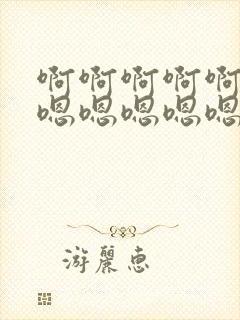 啊啊啊啊啊
嗯嗯嗯嗯嗯
游丽惠